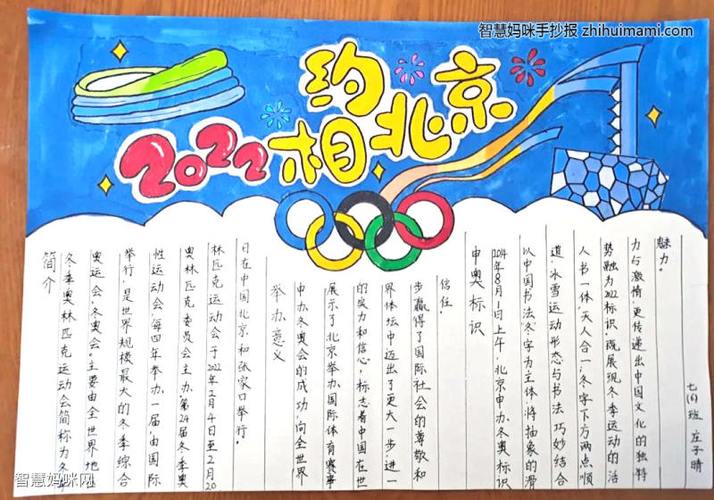 智慧妈咪手抄报 zhihuimami.com
2022相约北京
简介
冬季奥林匹克运动会简称为冬季
奥运会、冬奥会。主要由全世界地
举行，是世界规模最大的冬季综合
性运动会，每四年举办一届，由国际
奥林匹克委员会主办。第24届冬季奥
林匹克运动会于2022年2月4日至2月20
日在中国北京和张家口举行。
举办意义
申办冬奥会的成功，向全世界
展示了北京举办国际体育赛事
的实力和信心，标志着中国在世
界体坛中迈出了更大一步，进一
步赢得了国际社会的尊敬和
信任。
申奥标识
2014年8月1日上午，北京申办冬奥标识
以中国书法“冬”字为主体，将抽象的滑
道、冰雪运动形态与书法巧妙结合
人书一体，天人合一，“冬”字下方两点顺
势融为2022标识，既展现冬季运动的活
力与激情，更传递出中国文化的独特
魅力。
七(6)班 庄子晴
智慧妈咪网